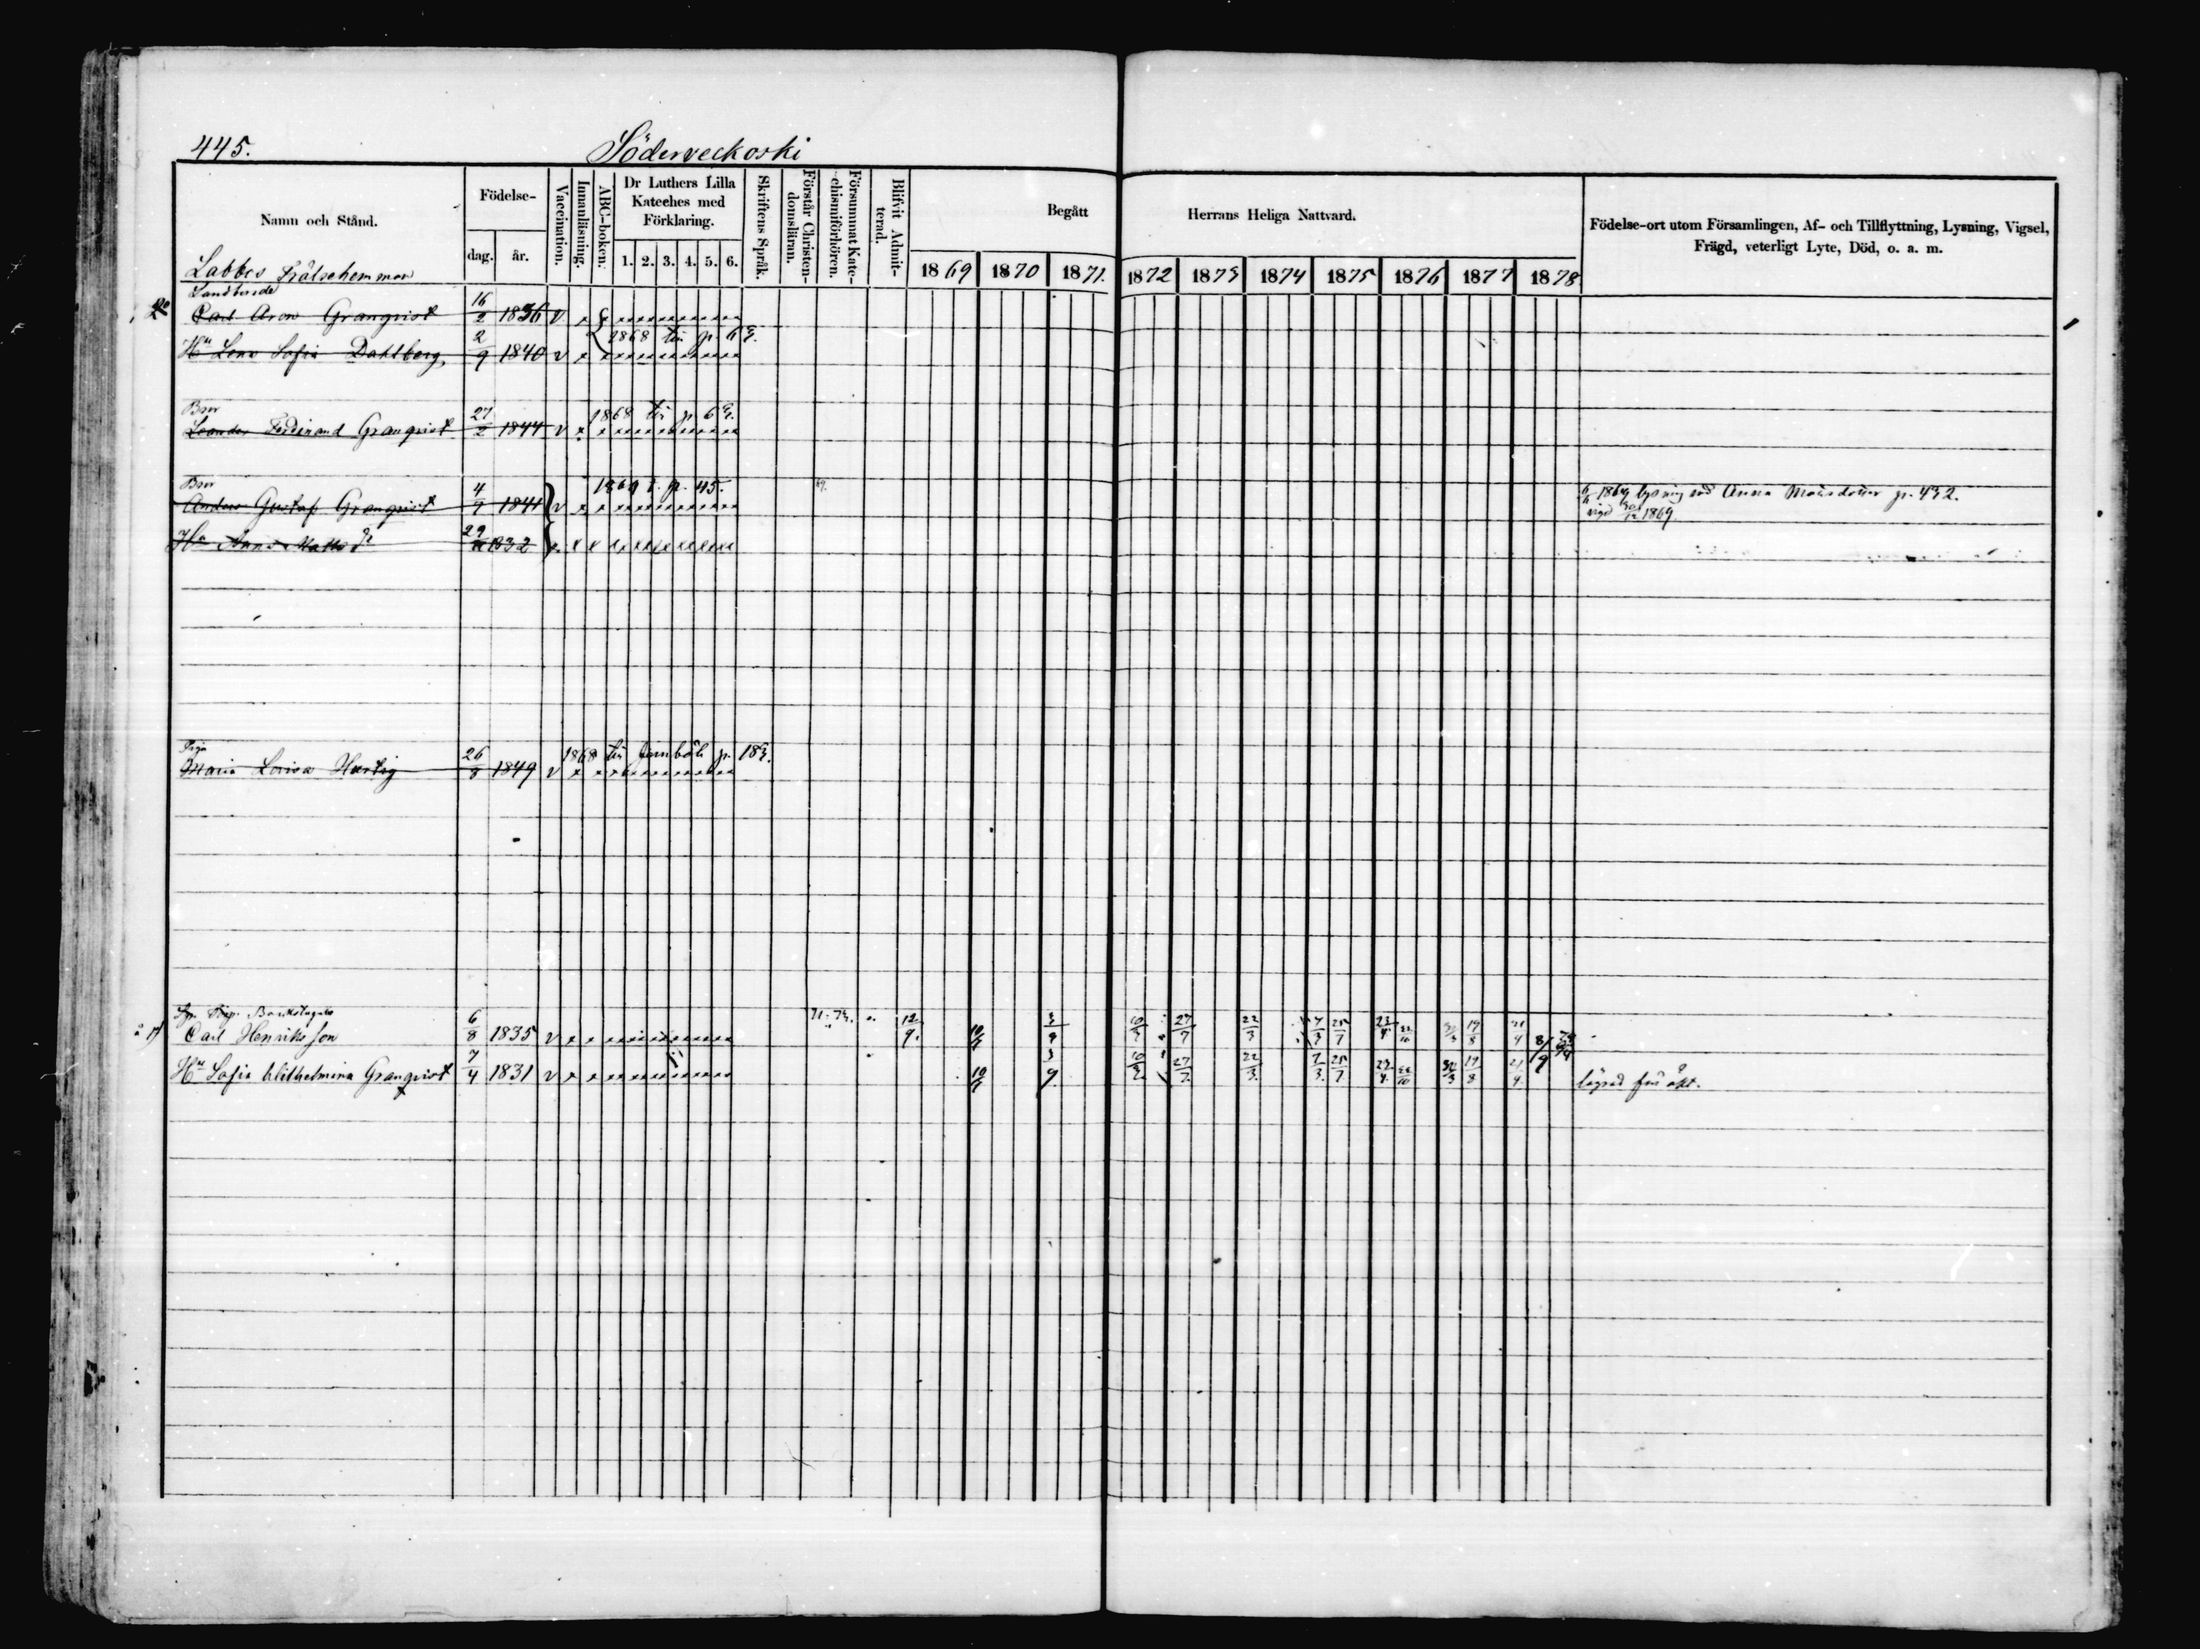 445.
Söderveckoski
Namn och Stånd.
Födelse-
dag. år.
Vaccination.
Innanläsning.
ABC-boken.
Dr Luthers Lilla
Kateches med
Förklaring.
1. 2. 3. 4. 5. 6.
Skriftens Språk.
Förstår Christen-
domsläran.
Försummat Kate-
chismiförhören.
Blifvit Admit-
terad.
Begått Herrans Heliga Nattvard.
1869 1870 1871. 1872 1873 1874 1875 1876 1877 1878
Födelse-ort utom Församlingen, Af- och Tillflyttning, Lysning, Vigsel,
Frägd, veterligt Lyte, Död, o. a. m.
Labbes Frälsehemman
Landbonde
Carl Aron Granqvist 16/2 1836 v
1868 till p. 63.
Hu Lena Sofia Dahlberg 2/9 1840 v
Bror 1868 till p. 63.
Leander Ferdinand Granqvist 27/2 1844 v
Bror 1869 t. p. 45.
Anders Gustaf Granqvist 4/9 1841 v
6/11 1869 lysning med Anna Matsdotter p. 432.
vigd 1869.
Hu Anna Matts dr 29 1832
Piga 1868 till Jernböle p. 183.
Maria Lovisa Hertig 26/8 1849 v
Backstugu
Carl Henriksson 6/8 1835 v 71. 73. 12/9. 10/7 3/9 10/3 27/7 22/3 7/3 25/7 23/4 22/10 19/8 21/4
Hu Sofia Wilhelmina Granqvist 7/4 1831 v 10/7 3/9 10/3 27/7 22/3 7/3 25/7 23/4 22/10 19/8 21/4
lägrad före äkt.